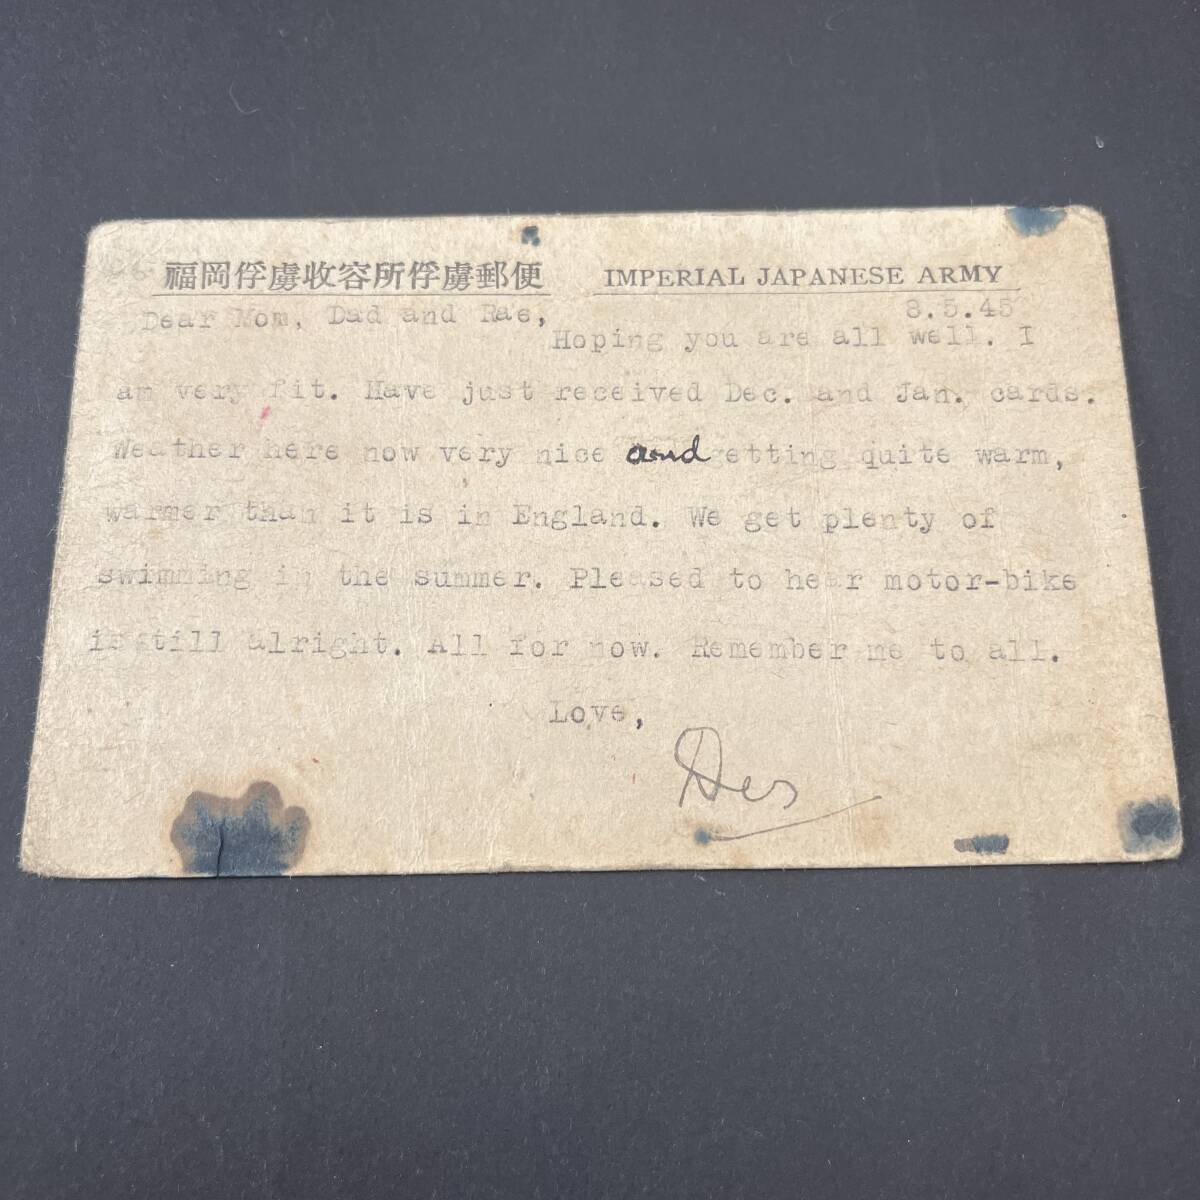 福岡俘虜收容所俘虜郵便 IMPERIAL JAPANESE ARMY
8.5.45
Dear Mom, Dad and Rae,
Hoping you are all well. I
am very fit. Have just received Dec. and Jan. cards.
Weather here now very nice and getting quite warm,
warmer than it is in England. We get plenty of
swimming in the summer. Pleased to hear motor-bike
is still alright. All for now. Remember me to all.
Love,
Des